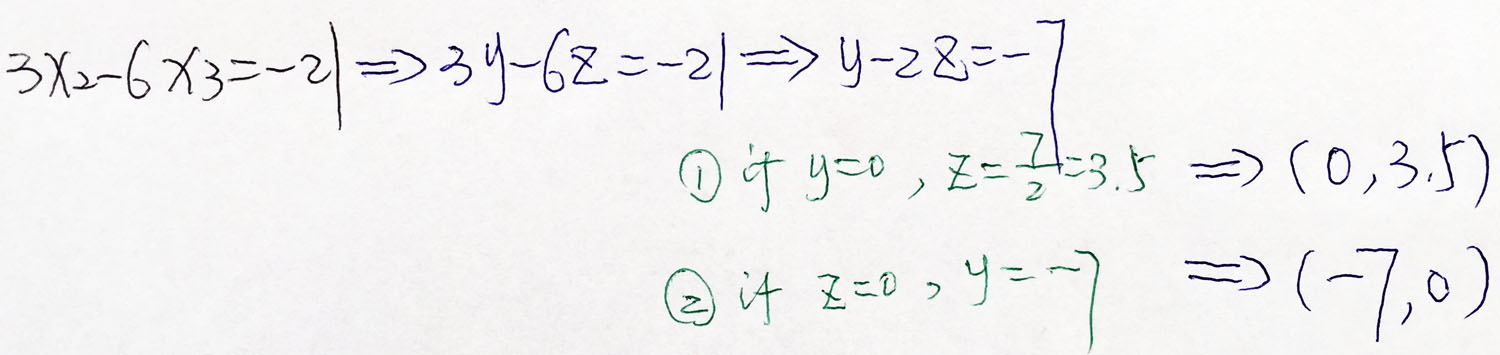 3x₂-6x₃=-21⇒3y-6z=-21⇒y-2z=-7
① if y=0, z=7/2=3.5 ⇒(0,3.5)
② if z=0, y=-7 ⇒(-7,0)